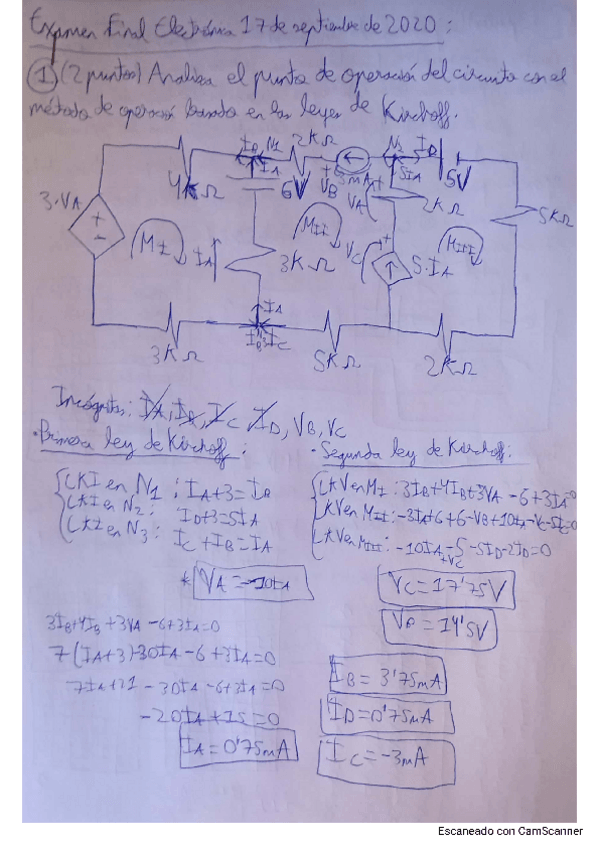 Examen Final Electrónica 17 de septiembre de 2020:
① (2 puntos) Analiza el punto de operación del circuito con el
método de operación basado en las leyes de Kirchoff.
I_B N_1 2KΩ N_2 I_D
I_A 3mA 5I_A
4KΩ 6V V_B V_A 5V
3·V_A 2KΩ 5KΩ
M_I I_A M_II V_C M_III
3KΩ 5·I_A
I_A
3KΩ I_B N_3 I_C 5KΩ 2KΩ
Incógnitas: I_A, I_B, I_C, I_D, V_B, V_C
· Primera ley de Kirchoff:
LKI en N_1: I_A+3=I_B
LKI en N_2: I_D+3=5I_A
LKI en N_3: I_C+I_B=I_A
* V_A=-10I_A
· Segunda ley de Kirchoff:
LKV en M_I: 3I_B+4I_B+3V_A-6+3I_A=0
LKV en M_II: -3I_A+6+6-V_B+10I_A-V_C-5I_C=0
LKV en M_III: -10I_A-5-5I_D-2I_D=0
+V_C
V_C=17'75V
V_B=14'5V
3I_B+4I_B+3V_A-6+3I_A=0
7(I_A+3)-30I_A-6+3I_A=0
7I_A+21-30I_A-6+3I_A=0
-20I_A+15=0
I_A=0'75mA
I_B=3'75mA
I_D=0'75mA
I_C=-3mA
Escaneado con CamScanner